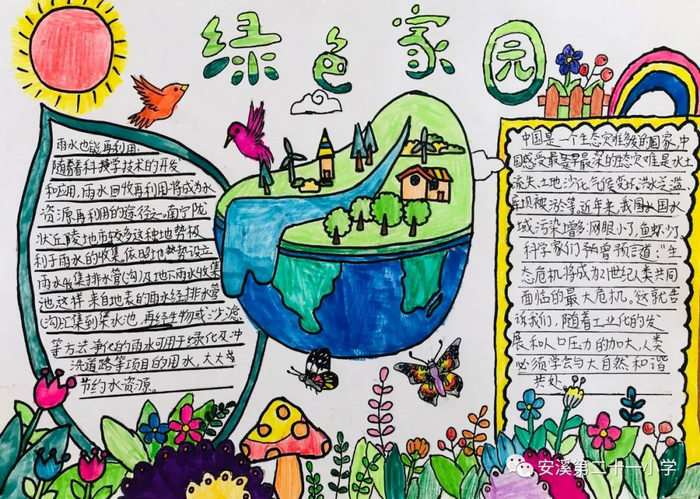 绿色家园
雨水也能再利用
随着科技学技术的开发
和应用,雨水回收再利用将成为水
资源再利用的途径之一南宁陇
状丘陵地市较多这种地势极
利于雨水的收集依地势设立
雨水收集排水管(沟)及地下雨水收集
池这样来自地表的雨水经排水管
(沟)汇集到集水池,再经生物或沙滤
等方法净化的雨水可用于绿化及冲
洗道路等项目的用水,大大
节约水资源。
中国是一个生态灾难频的国家,中
国感受最早最深的生态灾难是水土
流失,土地沙化,气候变坏,洪水泛滥
等,近年来,我国国水
域污染增多
科学家们预言道:"生
态危机将成为21世纪人类共同
面临的最大危机,这就告
诉我们,随着工业化的发
展和人口压力的加大,人类
必须学会与大自然和谐
共处。
安溪第二十一小学